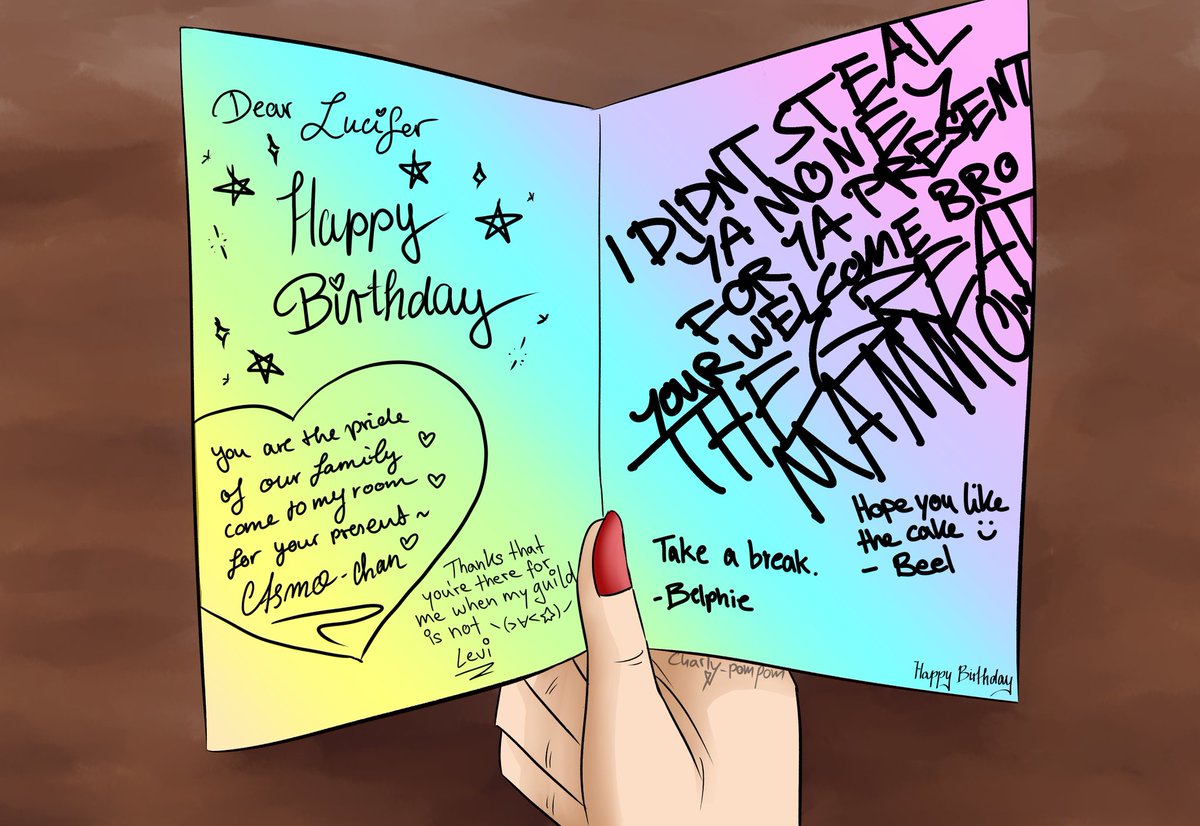 Dear Lucifer
Happy
Birthday
You are the pride
of our family
come to my room
for your present~
Asmo-chan
Thanks that
you're there for
me when my guild
is not ヽ(>∀<☆)ノ
Levi
I DIDNT STEAL
YA MONEY
FOR YA PRESENT
YOUR WELCOME BRO
THE GREAT
MAMMON
Hope you like
the cake
- Beel
Take a break.
-Belphie
Happy Birthday
Charly-pompom